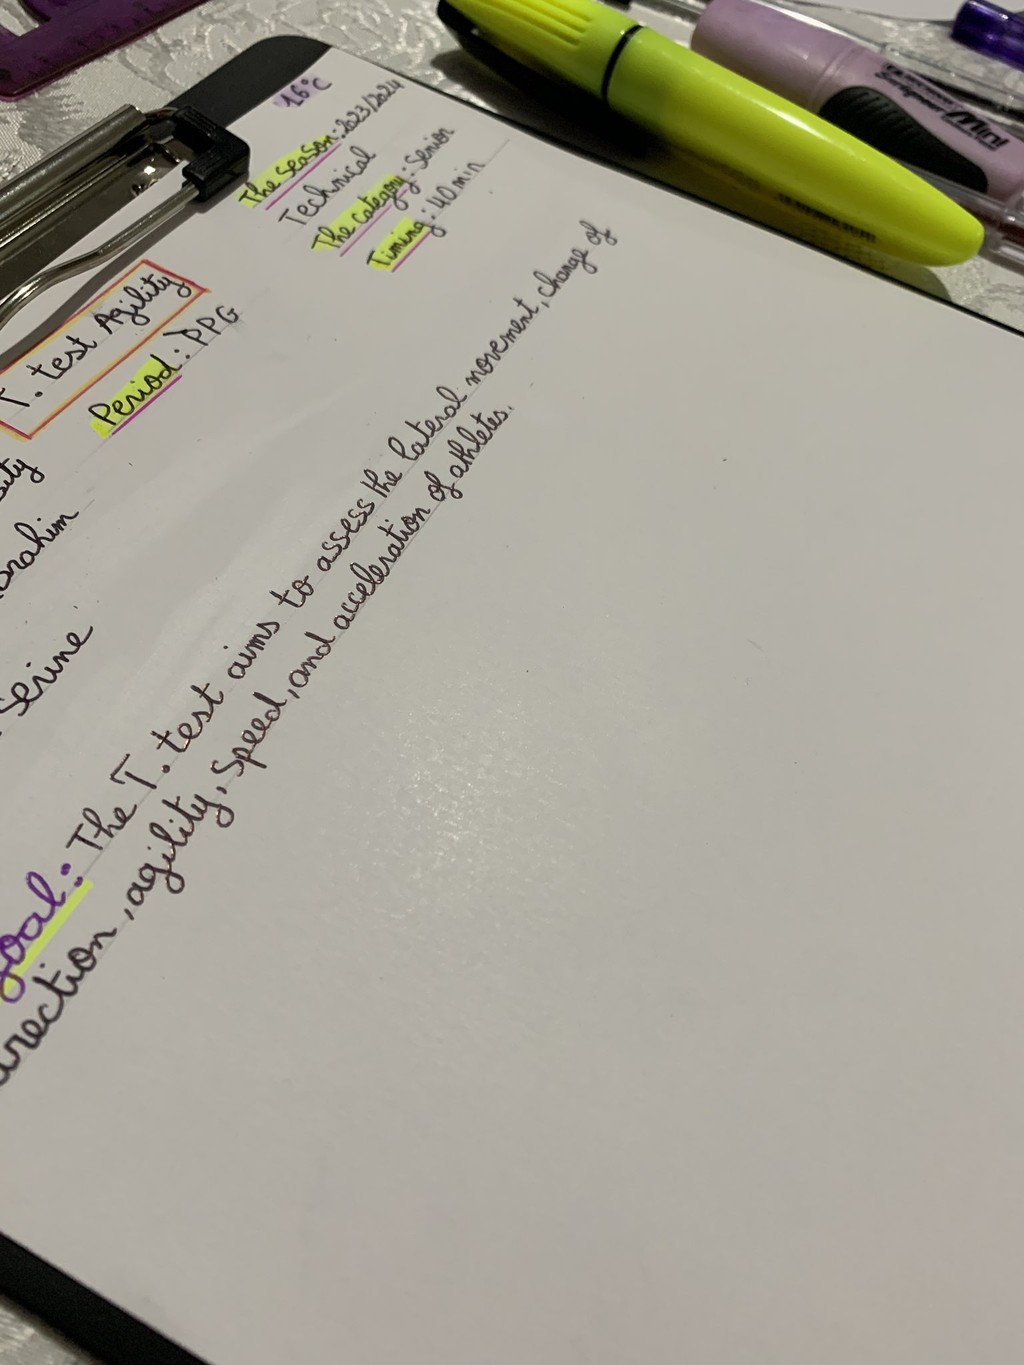 16°C
The Season: 2023/2024
Technical
The category: Senior
Timing: 40 min
T. test Agility
Period: PPG
Serine
The T. test aims to assess the lateral movement, change of
, agility, Speed, and acceleration of athletes.
Mini